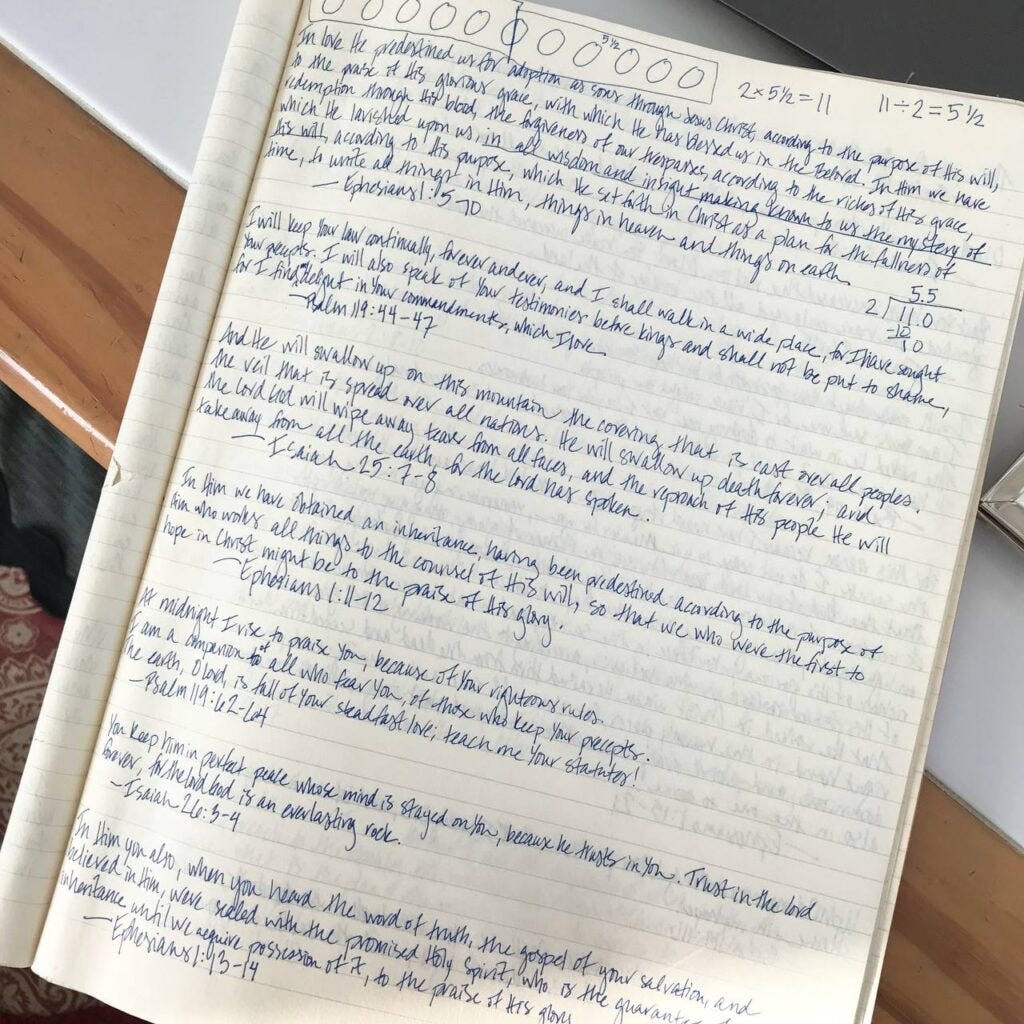 5 1/2
2 x 5 1/2 = 11
11 ÷ 2 = 5 1/2
In love He predestined us for adoption as sons through Jesus Christ, according to the purpose of His will,
to the praise of His glorious grace, with which He has blessed us in the Beloved. In Him we have
redemption through His blood, the forgiveness of our trespasses, according to the riches of His grace,
which He lavished upon us, in all wisdom and insight making known to us the mystery of
His will, according to His purpose, which He set forth in Christ as a plan for the fullness of
time, to unite all things in Him, things in heaven and things on earth.
—Ephesians 1:5-10
5.5
2 11.0
10
10
I will keep Your law continually, forever and ever, and I shall walk in a wide place, for I have sought
Your precepts. I will also speak of Your testimonies before kings and shall not be put to shame,
for I find delight in Your commandments, which I love.
—Psalm 119:44-47
And He will swallow up on this mountain the covering that is cast over all peoples.
the veil that is spread over all nations. He will swallow up death forever; and
the Lord God will wipe away tears from all faces, and the reproach of His people He will
take away from all the earth, for the Lord has spoken.
—Isaiah 25:7-8
In Him we have obtained an inheritance, having been predestined according to the purpose of
Him who works all things to the counsel of His will, so that we who were the first to
hope in Christ might be to the praise of His glory.
—Ephesians 1:11-12
At midnight I rise to praise You, because of Your righteous rules.
I am a companion of all who fear You, of those who keep Your precepts.
The earth, O Lord, is full of Your steadfast love; teach me Your statutes!
—Psalm 119:62-64
You keep him in perfect peace whose mind is stayed on You, because he trusts in You. Trust in the Lord
forever, for the Lord God is an everlasting rock.
—Isaiah 26:3-4
In Him you also, when you heard the word of truth, the gospel of your salvation, and
believed in Him, were sealed with the promised Holy Spirit, who is the
inheritance until we acquire possession of it, to the praise of His glory
—Ephesians 1:13-14